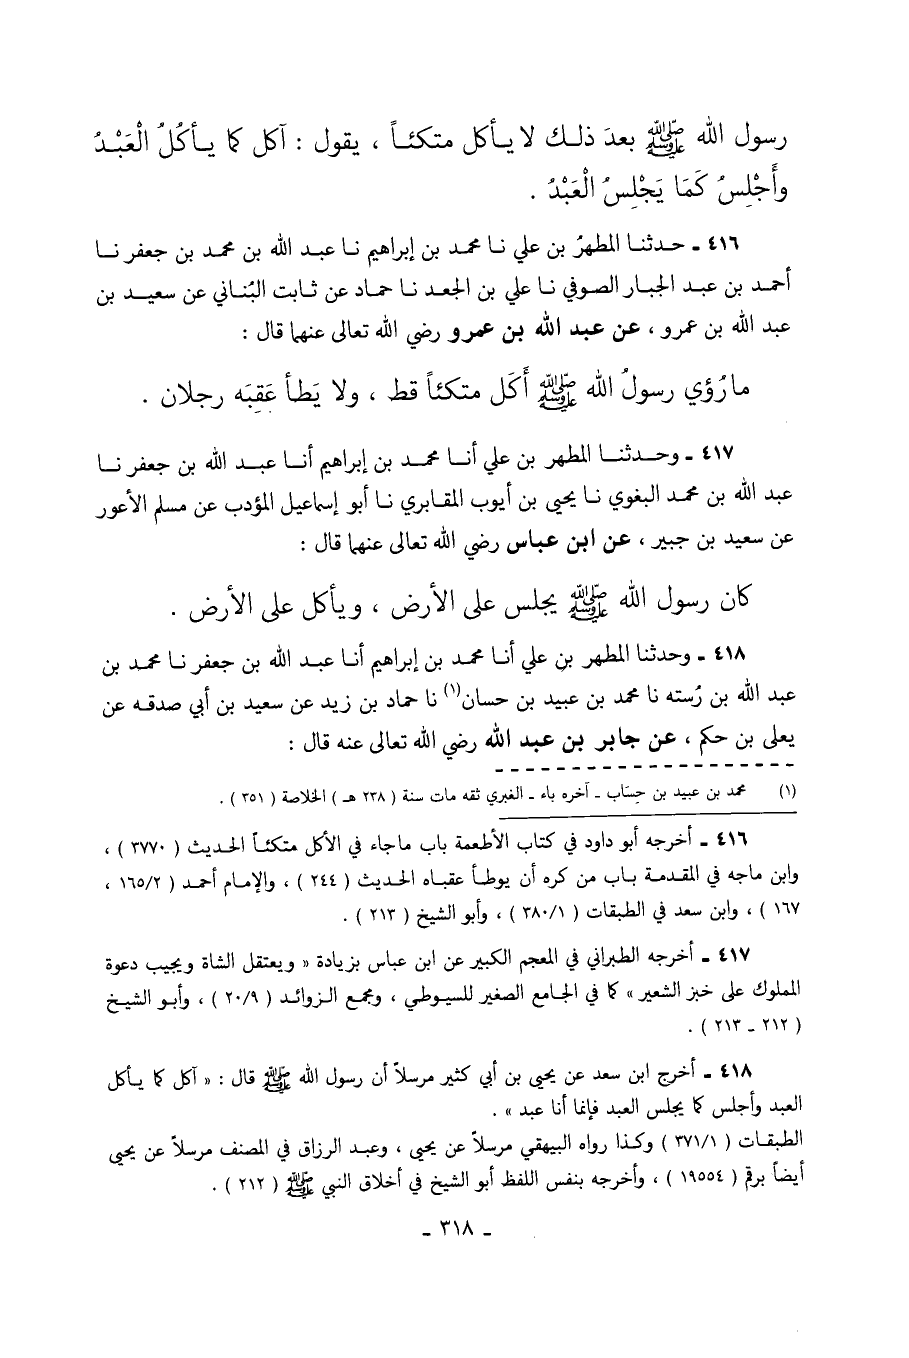 رسول الله ﷺ بعدَ ذلك لا يأكل متكئاً ، يقول : آكل كما يأكُلُ الْعَبْدُ
وأَجْلِسُ كَمَا يَجْلِسُ الْعَبْدُ .
٤١٦ ـ حدثنا المطهرُ بن علي نا محمد بن إبراهيم نا عبد الله بن محمد بن جعفر نا
أحمد بن عبد الجبار الصوفي نا علي بن الجعد نا حماد عن ثابت البُناني عن سعيد بن
عبد الله بن عمرو ، عن عبد الله بن عمرو رضي الله تعالى عنهما قال :
ما رُؤي رسولُ الله ﷺ أَكَل متكئاً قط ، ولا يَطأ عَقِبَه رجلان .
٤١٧ ـ وحدثنا المطهر بن علي أنا محمد بن إبراهيم أنا عبد الله بن جعفر نا
عبد الله بن محمد البغوي نا يحيى بن أيوب المقابري نا أبو إسماعيل المؤدب عن مسلم الأعور
عن سعيد بن جبير ، عن ابن عباس رضي الله تعالى عنهما قال :
كان رسول الله ﷺ يجلس على الأرض ، ويأكل على الأرض .
٤١٨ ـ وحدثنا المطهر بن علي أنا محمد بن إبراهيم أنا عبد الله بن جعفر نا محمد بن
عبد الله بن رُسته نا محمد بن عبيد بن حسان(١) نا حماد بن زيد عن سعيد بن أبي صدقه عن
يعلى بن حكم ، عن جابر بن عبد الله رضي الله تعالى عنه قال :
(١) محمد بن عبيد بن حِسَاب ـ آخره باء ـ الغبري ثقه مات سنة ( ٢٣٨ هـ ) الخلاصة ( ٣٥١ ) .
٤١٦ ـ أخرجه أبو داود في كتاب الأطعمة باب ماجاء في الأكل متكئاً الحديث ( ٣٧٧٠ ) ،
وابن ماجه في المقدمة باب من كره أن يوطأ عقباه الحديث ( ٢٤٤ ) ، والإمام أحمد ( ١٦٥/٢ ،
١٦٧ ) ، وابن سعد في الطبقات ( ٣٨٠/١ ) ، وأبو الشيخ ( ٢١٣ ) .
٤١٧ ـ أخرجه الطبراني في المعجم الكبير عن ابن عباس بزيادة « ويعتقل الشاة ويجيب دعوة
المملوك على خبز الشعير » كما في الجامع الصغير للسيوطي ، ومجمع الزوائد ( ٢٠/٩ ) ، وأبو الشيخ
( ٢١٢ ـ ٢١٣ ) .
٤١٨ ـ أخرج ابن سعد عن يحيى بن أبي كثير مرسلاً أن رسول الله ﷺ قال : « آكل كما يأكل
العبد وأجلس كما يجلس العبد فإنما أنا عبد » .
الطبقات ( ٣٧١/١ ) وكذا رواه البيهقي مرسلاً عن يحيى ، وعبد الرزاق في المصنف مرسلاً عن يحيى
أيضاً برقم ( ١٩٥٥٤ ) ، وأخرجه بنفس اللفظ أبو الشيخ في أخلاق النبي ﷺ ( ٢١٢ ) .
ـ ٣١٨ ـ